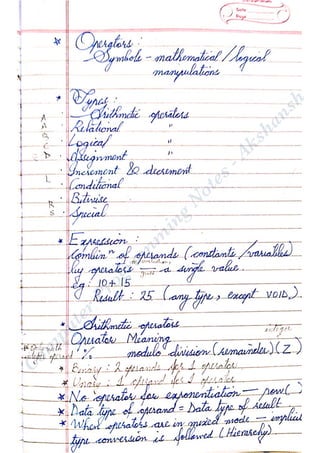 Date
Page
* Operators :
— Symbols - mathematical / logical
manipulations
* Types :
A · Arithmetic operators
A · Relational "
B · Logical "
C · Assignment "
I · Increment & decrement
L · Conditional
R · Bitwise
S · Special
* Expression :
Combinⁿ of operands (constants / variables)
by operators — gives a single value.
eg: 10+15
Result : 25 (any type, except VOID).
* Arithmetic operators
Operator Meaning integer
% modulo division (remainder) (Z)
* Binary : 2 operands for 1 operator
* Unary : 1 operand for 1 operator
* No operator for exponentiation — pow( )
* Data type of operand = Data type of result
* When operators are in mixed mode — implicit
type conversion is followed (Hierarchy)
Programming Notes - Akshansh